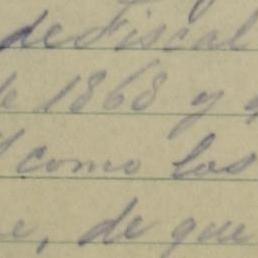 de Fiscal
de 1868 y
como los
de que